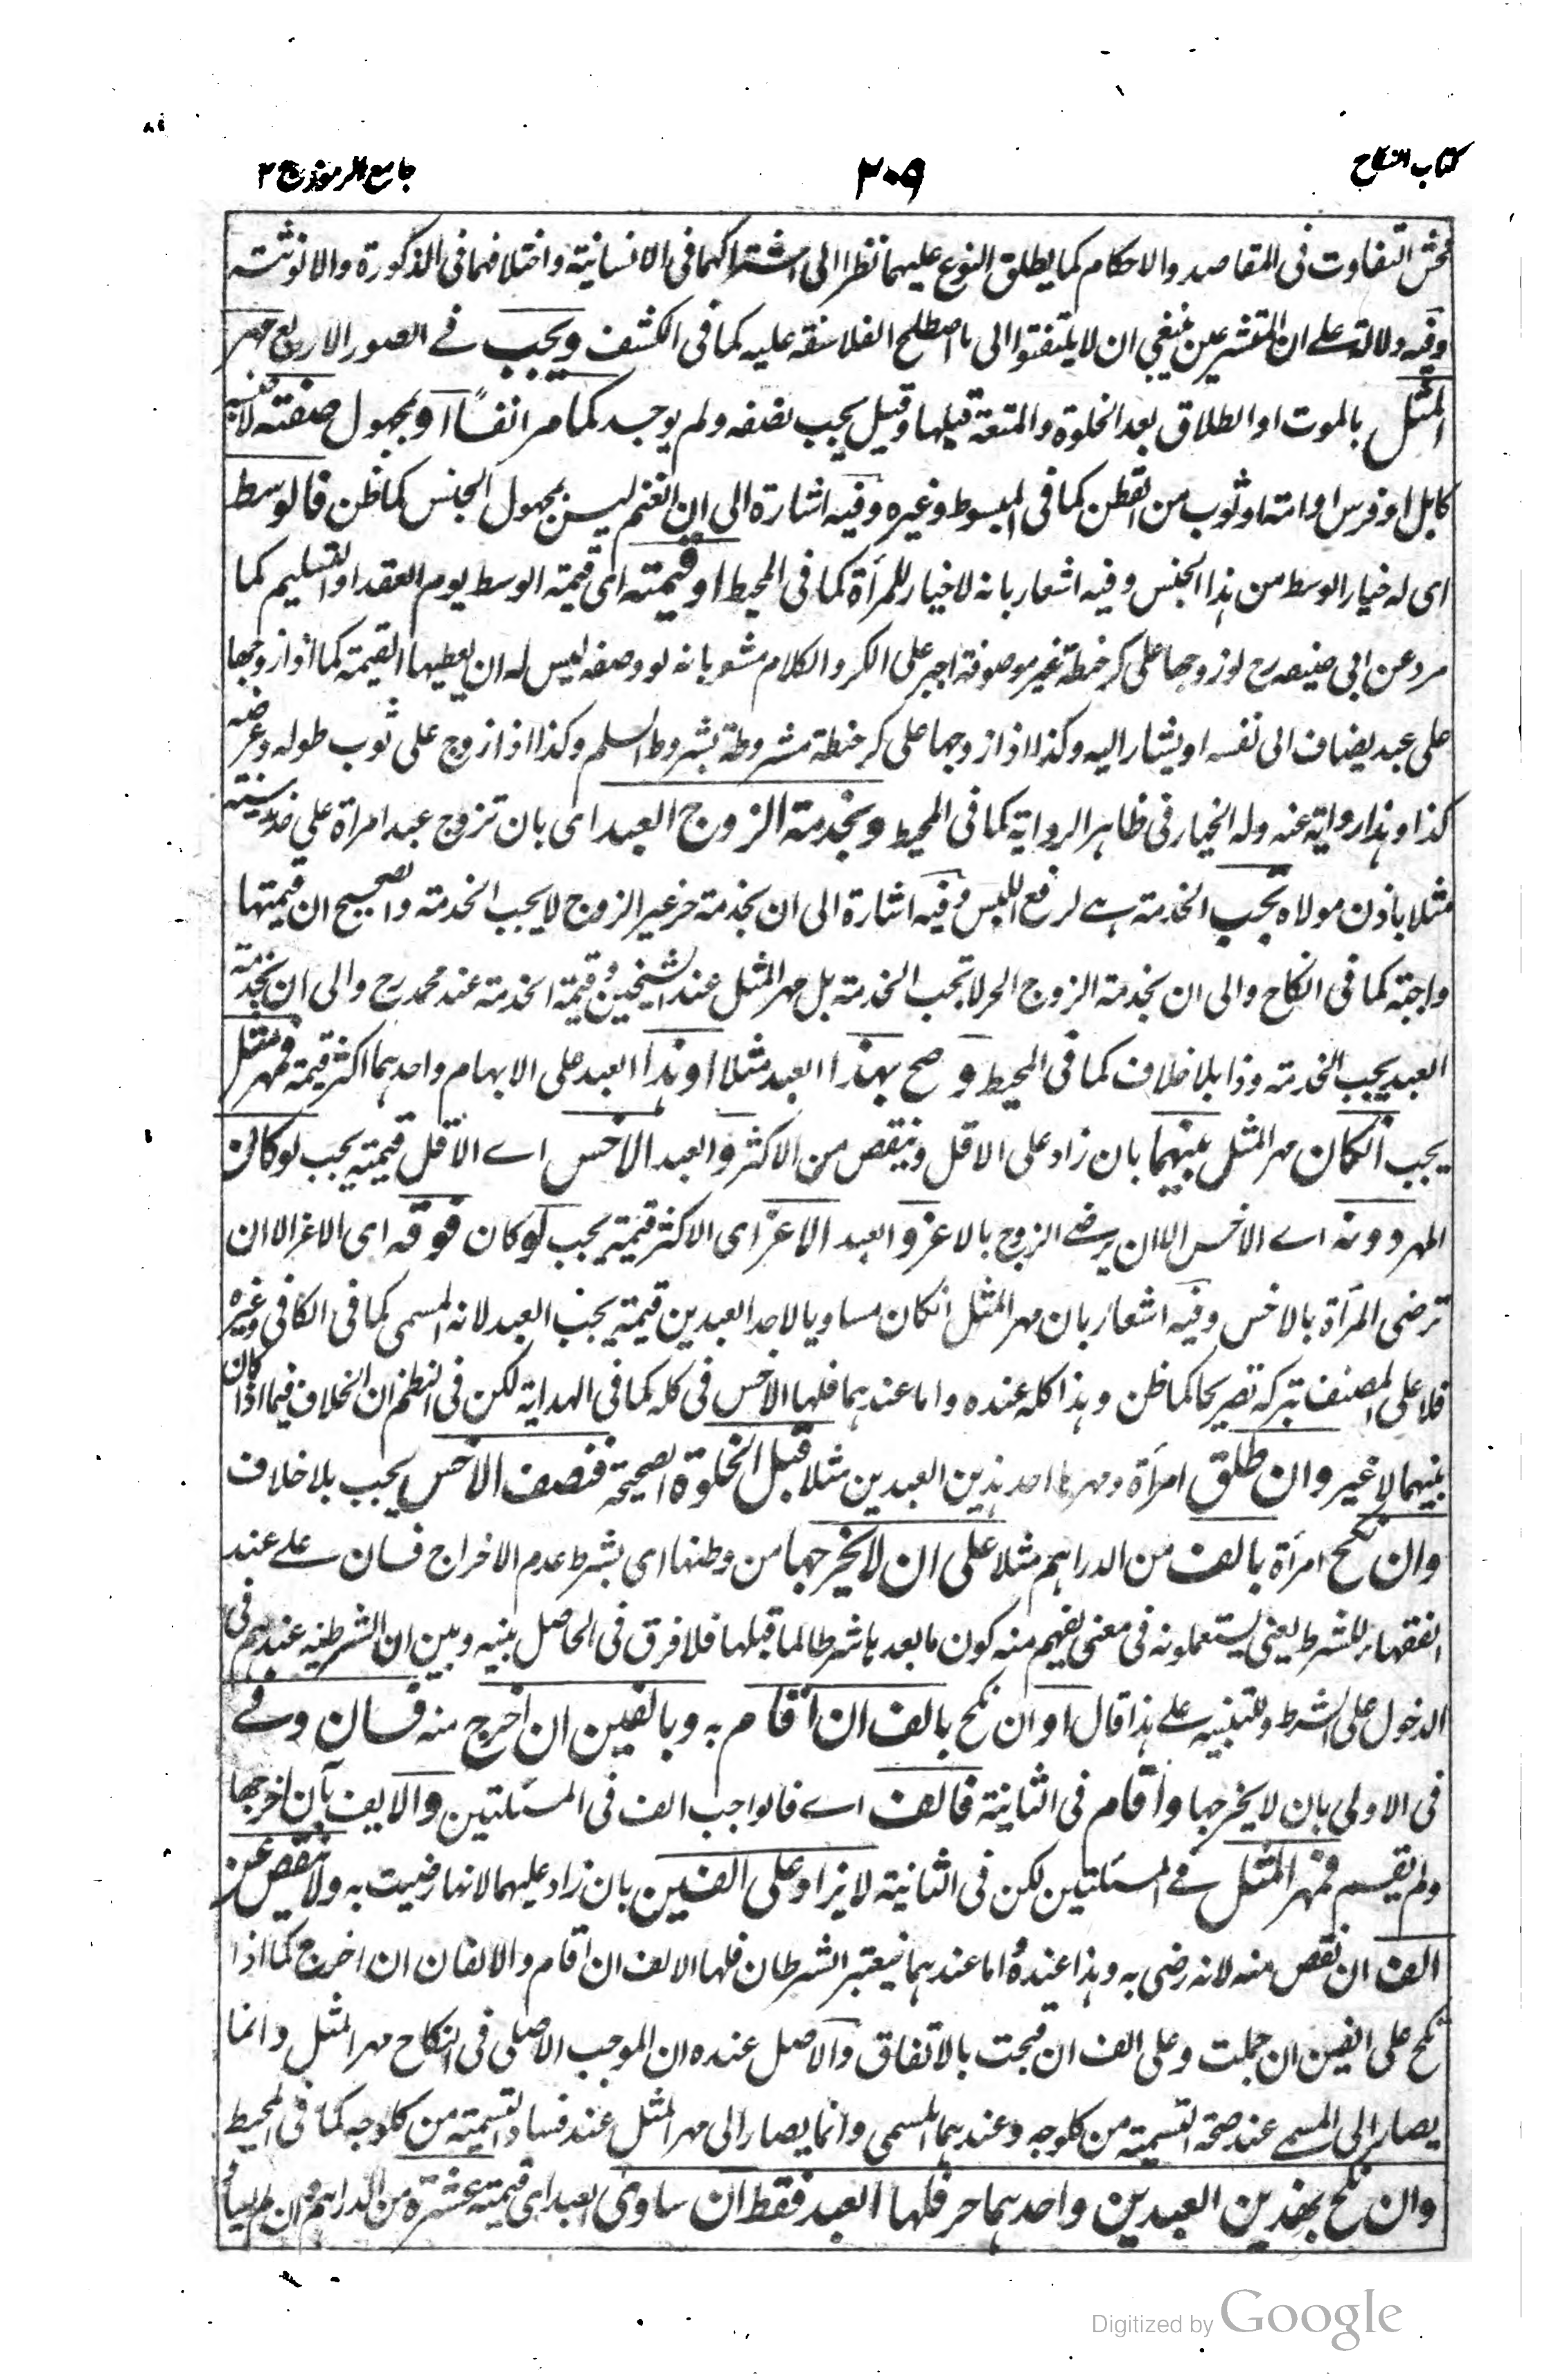 كتاب النكاح
٢٠٩
جامع الرموز ج ٢
فحش التفاوت فى المقاصد والاحكام كما يطلق النوع عليهما نظرا الى اشتراكهما فى الانسانية واختلافهما فى الذكورة والانوثة
وفيه دلالة على ان المتشرعين ينبغى ان لا يلتفتوا الى ما اصطلح الفلاسفة عليه كما فى الكشف ويجب فى الصور الاربع مهر
المثل بالموت او الطلاق بعد الخلوة والمتعة قبلها وقيل يجب نصفه ولم يوجد كما مر انفًا او بمجهول صفته لا جنسه
كابل او فرس او امة او ثوب من القطن كما فى المبسوط وغيره وفيه اشارة الى ان الغنم ليس بمجهول الجنس كما ظن فالوسط
اى له خيار الوسط من هذا الجنس وفيه اشعار بانه لا خيار للمرأة كما فى المحيط او قيمته اى قيمة الوسط يوم العقد او التسليم كما
مر وعن ابى حنيفه رح لو زوجها على كر حنطة غير موصوفة اجبر على الكر والكلام مشعر بانه لو وصفه ليس له ان يعطيها القيمة كما اذا زوجها
على عبد يضاف الى نفسه او يشار اليه وكذا اذا زوجها على كر حنطة مشروطة بشروط السلم وكذا اذا زوج على ثوب طوله وعرضه
كذا وهذا رواية عنه وله الخيار فى ظاهر الرواية كما فى المحيط وبخدمة الزوج العبد اى بان تزوج عبد امرأة على خدمة سنة
مثلا باذن مولاه تجب الخدمة هى لرفع اللبس وفيه اشارة الى ان بخدمة حر غير الزوج لا يجب الخدمة والصحيح ان قيمتها
واجبة كما فى النكاح والى ان بخدمة الزوج الحر لا تجب الخدمة بل مهر المثل عند الشيخين وقيمة الخدمة عند محمد رح والى ان بخدمة
العبد يجب الخدمة وذا بلا خلاف كما فى المحيط و صح بهذا العبد مثلا او هذا العبد على الابهام واحدهما اكثر قيمة فمهر مثل
يجب ان كان مهر المثل بينهما بان زاد على الاقل وينقص من الاكثر والعبد الاخس اى الاقل قيمته يجب لو كان
المهر دونه اى الاخس الا ان يرضى الزوج بالاعز والعبد الاعز اى الاكثر قيمة يجب لو كان فوقه اى الاعز الا ان
ترضى المرأة بالاخس وفيه اشعار بان مهر المثل انكان مساويا لاحد العبدين قيمة يجب العبد لانه المسمى كما فى الكافى وغيره
فلا على المصنف بتركه تصريحا كما ظن وهذا كله عنده واما عندهما فلها الاخس فى كله كما فى الهداية لكن فى النظم ان الخلاف فيما اذا كان
بينهما لا غير وان طلق امرأة ومهرها احد هذين العبدين مثلا قبل الخلوة الصحيحة فنصف الاخس يجب بلا خلاف
وان نكح امرأة بالف من الدراهم مثلا على ان لا يخرجها من وطنها اى بشرط عدم الاخراج فان على عند
الفقهاء للشرط يعنى يستعملونه فى معنى يفهم منه كون ما بعدها شرطا لما قبلها فلا فرق فى الحاصل بينه وبين ان الشرطية عندهم فى
الدخول على الشرط وللتنبيه على هذا قال او ان نكح بالف ان اقام به وبالفين ان اخرج منه فان وفى
فى الاولى بان لا يخرجها واقام فى الثانية فالف اى فالواجب الف فى المسئلتين والا يف بان اخرجها
ولم يقم فمهر المثل فى المسئلتين لكن فى الثانية لا يزاد على الفين بان زاد عليهما لانها رضيت به ولا ينقص عن
الف ان نقص منه لانه رضى به وهذا عنده واما عندهما فيعتبر الشرطان فلها الالف ان اقام والالفان ان اخرج كما اذا
نكح على الفين ان جملت وعلى الف ان قبحت بالاتفاق والاصل عنده ان الموجب الاصلى فى النكاح مهر المثل وانما
يصار الى المسمى عند صحة التسمية من كل وجه وعندهما المسمى وانما يصار الى مهر المثل عند فساد التسمية من كل وجه كما فى المحيط
وان نكح بهذين العبدين واحدهما حر فلها العبد فقط ان ساوى العبد اى قيمته عشرة من الدراهم وان لم يسا
Digitized by Google